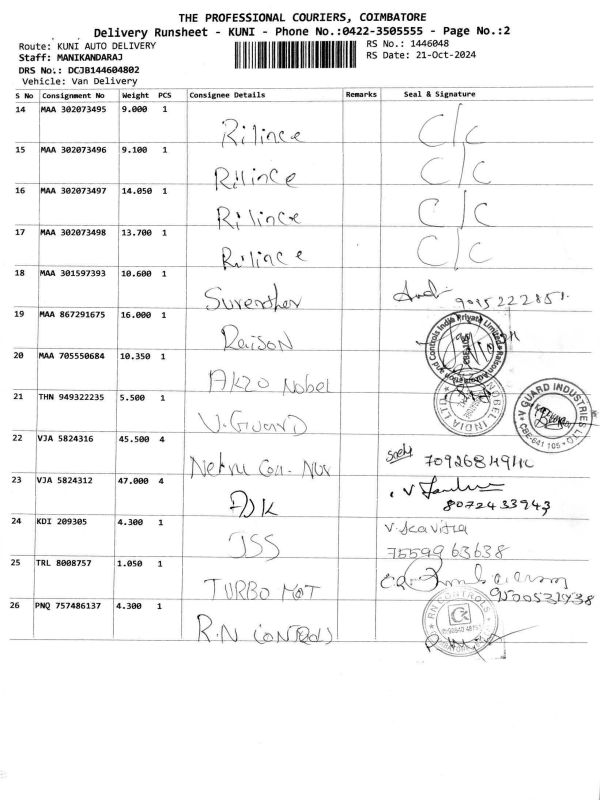 THE PROFESSIONAL COURIERS, COIMBATORE
Delivery Runsheet - KUNI - Phone No.:0422-3505555 - Page No.:2
Route: KUNI AUTO DELIVERY
RS No.: 1446048
Staff: MANIKANDARAJ
RS Date: 21-Oct-2024
DRS No.: DCJB144604802
Vehicle: Van Delivery
S No Consignment No Weight PCS Consignee Details Remarks Seal & Signature
14 MAA 302073495 9.000 1 Rilince C/C
15 MAA 302073496 9.100 1 Rilince C/C
16 MAA 302073497 14.050 1 Rilince C/C
17 MAA 302073498 13.700 1 Rilince C/C
18 MAA 301597393 10.600 1
19 MAA 867291675 16.000 1 Raison
20 MAA 705550684 10.350 1 AKZO Nobel
21 THN 949322235 5.500 1 V.GUARD
V GUARD INDUSTRIES LTD
CBE-641 105
22 VJA 5824316 45.500 4
23 VJA 5824312 47.000 4 8072433943
24 KDI 209305 4.300 1 JSS
7559963638
25 TRL 8008757 1.050 1 TURBO MOT
26 PNQ 757486137 4.300 1 R.N
RN CONTROLS